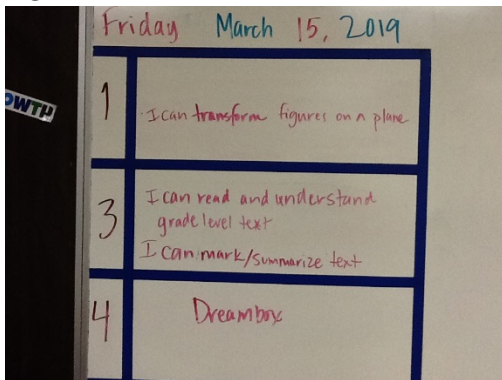 Friday March 15, 2019
OWTH
1
I can transform figures on a plane
3
I can read and understand
grade level text
I can mark/summarize text
4
Dreambox